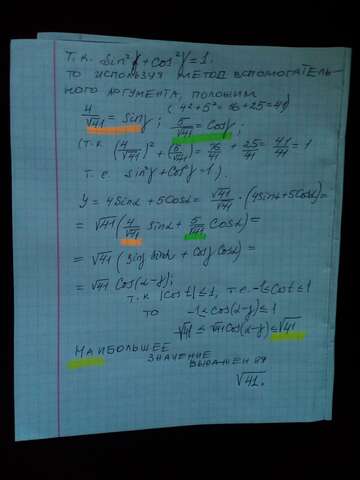 т.к. sin²γ + cos²γ = 1.
то используя метод вспомогатель-
ного аргумента, положим
(4² + 5² = 16 + 25 = 41)
4/√41 = sinγ ; 5/√41 = cosγ ;
(т.к. (4/√41)² + (5/√41)² = 16/41 + 25/41 = 41/41 = 1
т.е. sin²γ + cos²γ = 1).
y = 4sinα + 5cosα = √41/√41 · (4sinα + 5cosα) =
= √41 (4/√41 sinα + 5/√41 cosα) =
= √41 (sinγ sinα + cosγ cosα) =
= √41 cos(α - γ);
т.к |cost| ≤ 1, т.е. -1 ≤ cost ≤ 1
то -1 ≤ cos(α - γ) ≤ 1
-√41 ≤ √41 cos(α - γ) ≤ √41
НАИБОЛЬШЕЕ
ЗНАЧЕНИЕ
ВЫРАЖЕНИЯ
√41.